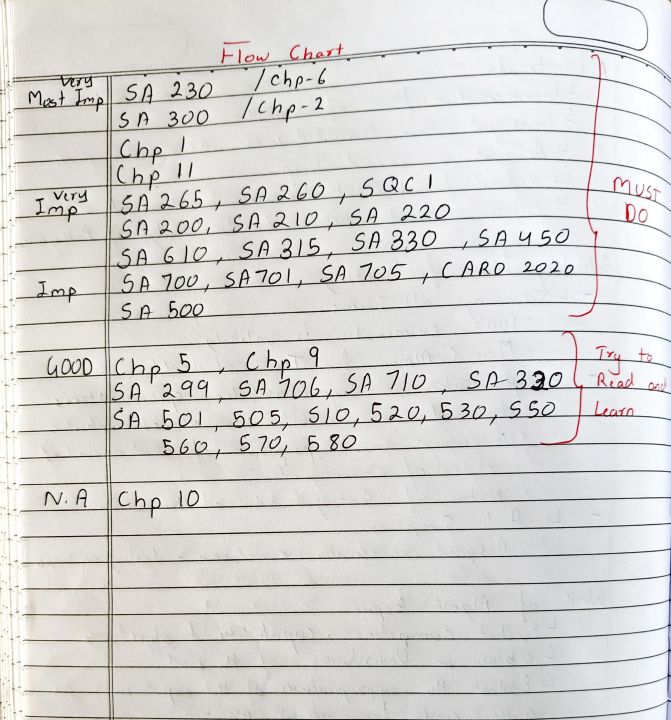 Flow Chart
Very
Most Imp SA 230 /Chp-6
SA 300 /Chp-2
Chp 1
Chp 11
Very
Imp SA 265, SA 260, SQC 1
SA 200, SA 210, SA 220
MUST
DO
SA 610, SA 315, SA 330, SA 450
Imp SA 700, SA 701, SA 705, CARO 2020
SA 500
GOOD Chp 5, Chp 9
SA 299, SA 706, SA 710, SA 320
SA 501, 505, 510, 520, 530, 550
560, 570, 580
Try to
Read and
Learn
N.A Chp 10